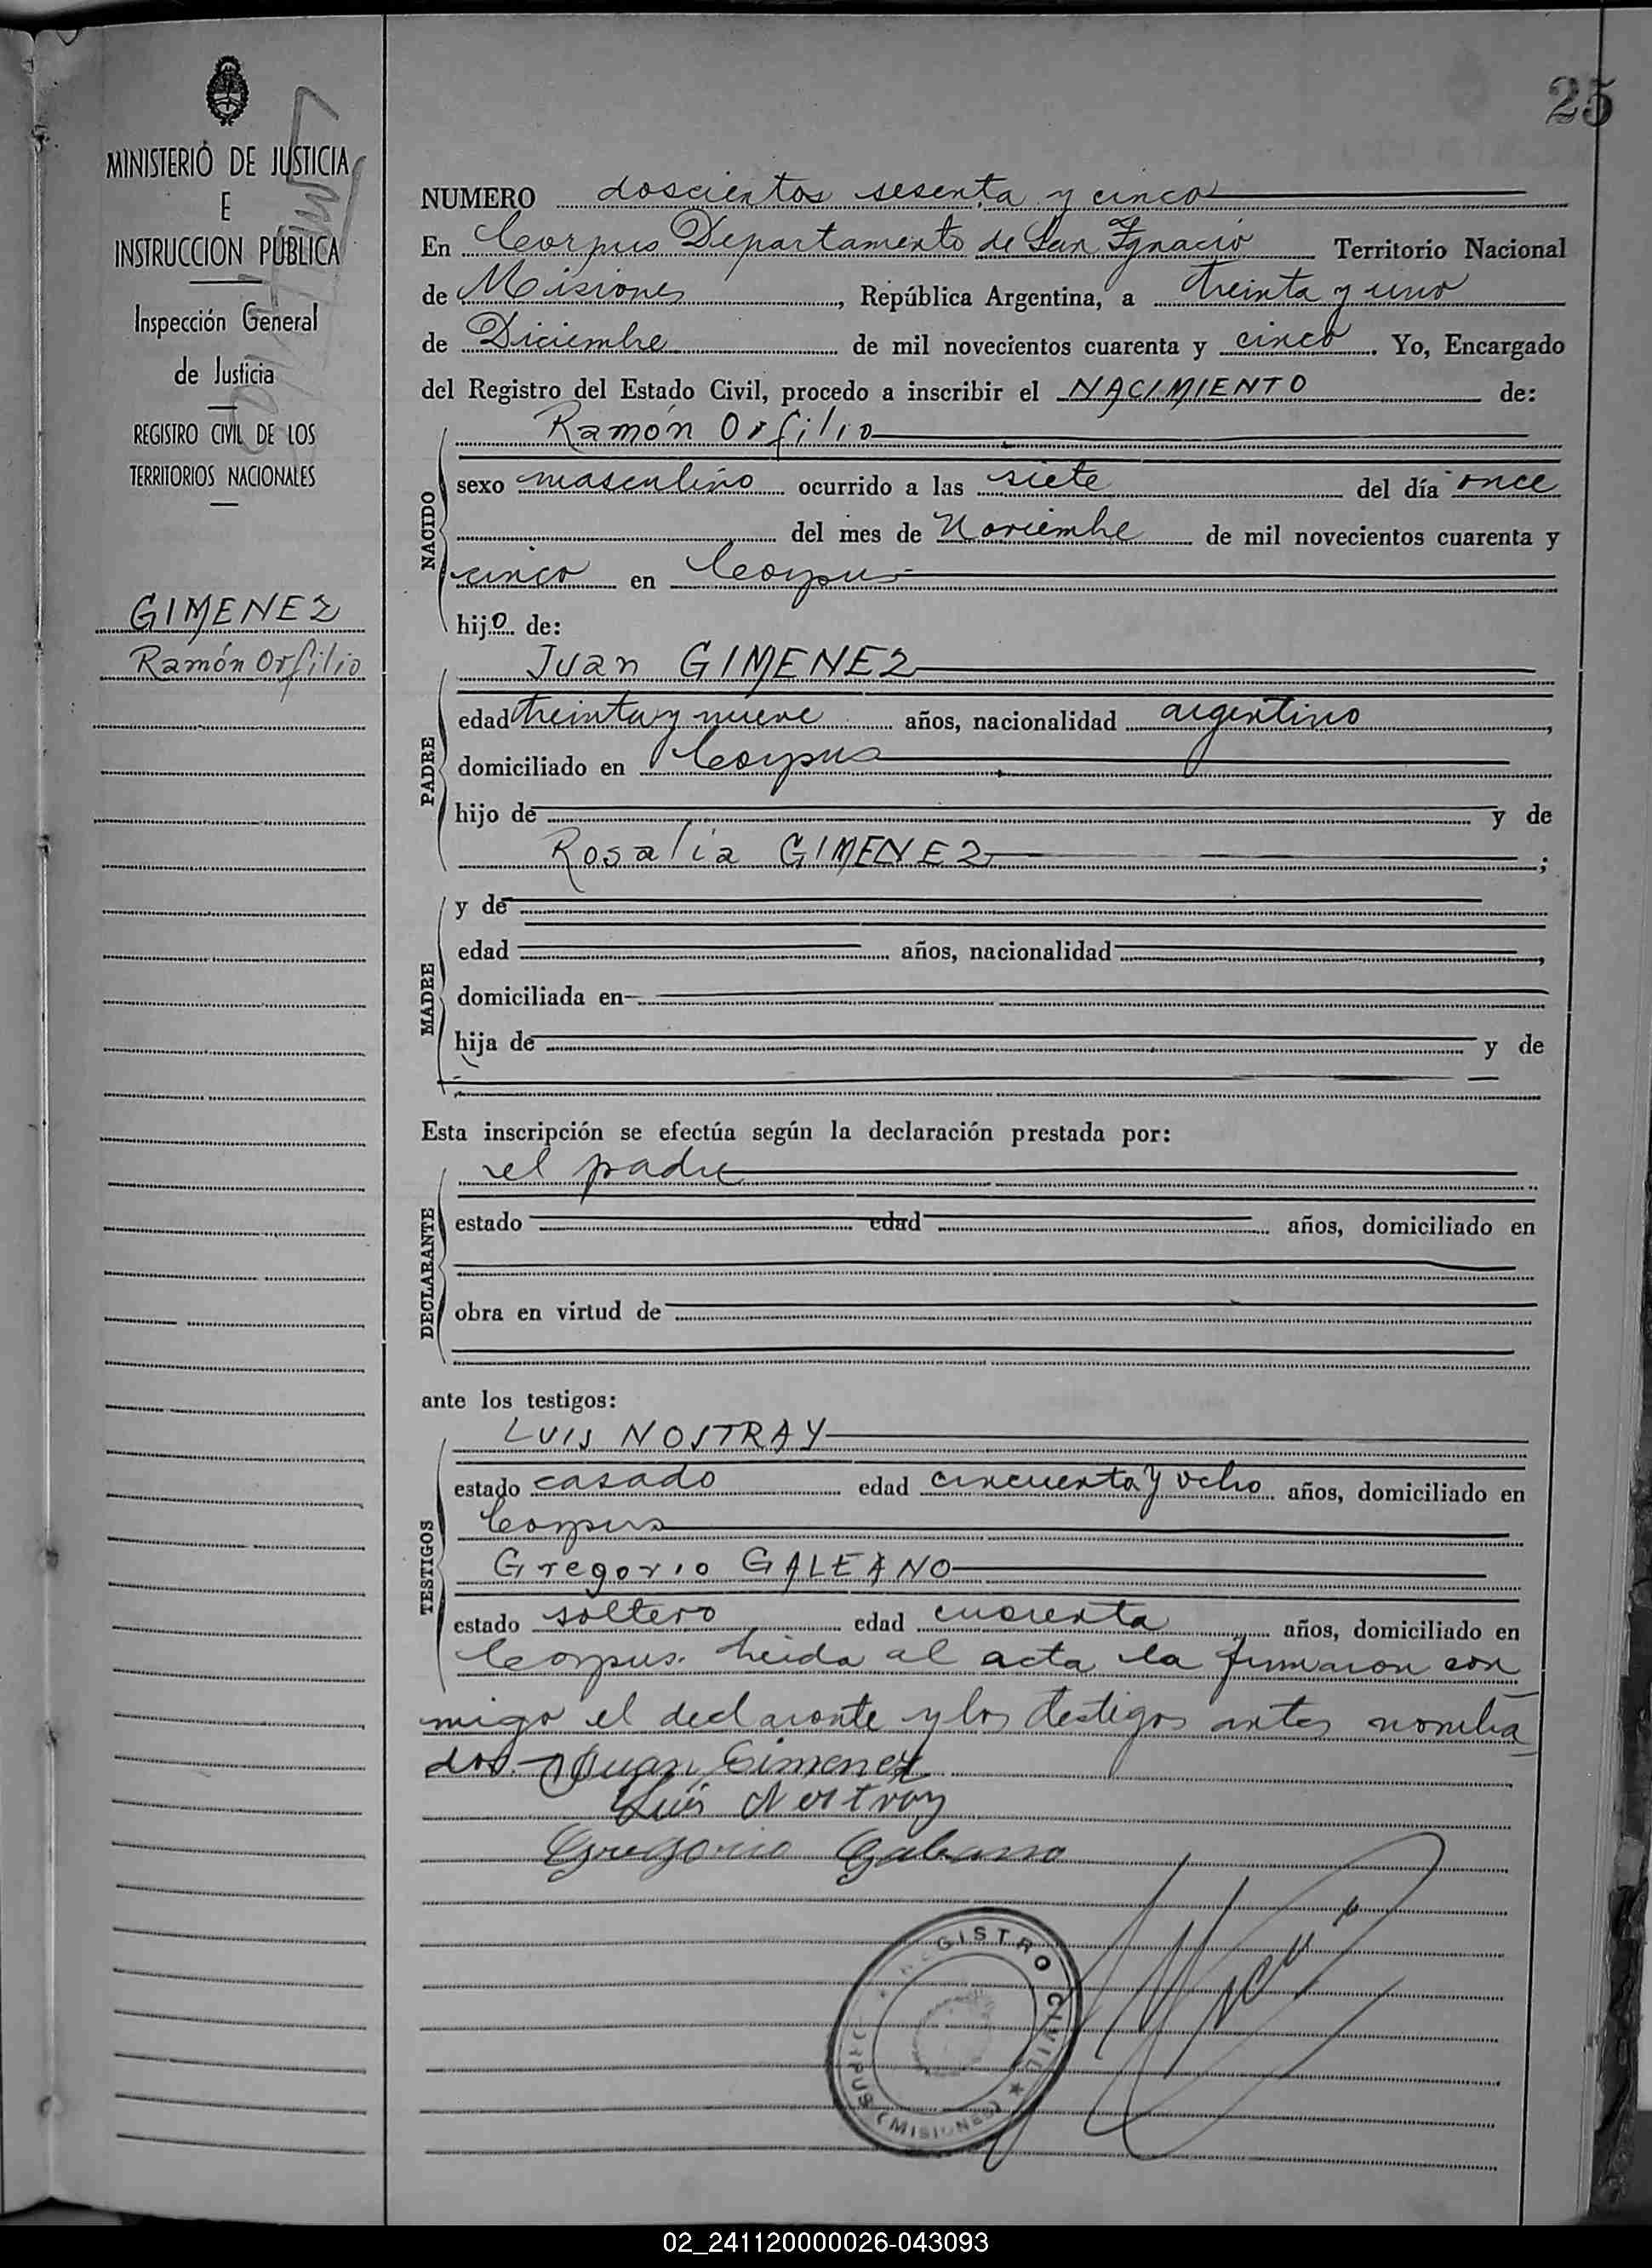 25
MINISTERIO DE JUSTICIA
E
INSTRUCCION PUBLICA
Inspección General
de Justicia
REGISTRO CIVIL DE LOS
TERRITORIOS NACIONALES
GIMENEZ
Ramón Orfilio
NUMERO doscientos sesenta y cinco
En Corpus Departamento de San Ignacio Territorio Nacional
de Misiones, República Argentina, a treinta y uno
de Diciembre de mil novecientos cuarenta y cinco. Yo, Encargado
del Registro del Estado Civil, procedo a inscribir el NACIMIENTO de:
Ramón Orfilio
NACIDO
sexo masculino ocurrido a las siete del día once
del mes de Noviembre de mil novecientos cuarenta y
cinco en Corpus
hijo de:
Juan GIMENEZ
PADRE
edad treinta y nueve años, nacionalidad argentino,
domiciliado en Corpus
hijo de y de
Rosalia GIMENEZ;
MADRE
y de
edad años, nacionalidad,
domiciliada en
hija de y de
Esta inscripción se efectúa según la declaración prestada por:
el padre
DECLARANTE
estado edad años, domiciliado en
obra en virtud de
ante los testigos:
LUIS NOSTRAY
TESTIGOS
estado casado edad cincuenta y ocho años, domiciliado en
Corpus
Gregorio GALEANO
estado soltero edad cuarenta años, domiciliado en
Corpus. Leida al acta la firmaron con
migo el declarante y los testigos antes nombra
dos.- Juan Gimenez
Luis Nostray
Gregorio Galeano
REGISTRO CIVIL
CORPUS (MISIONES)
02_241120000026-043093